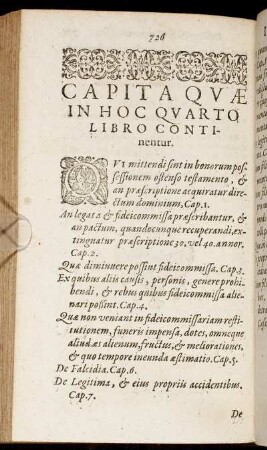 726
CAPITA QVÆ
IN HOC QVARTO
LIBRO CONTI-
nentur.
QVI mittendi sint in bonorum pos-
sessionem ostenso testamento, &
an præscriptione acquiratur dire-
ctum dominium, Cap.1.
An legata & fideicommissa præscribantur, &
an pactum, quandocunque recuperandi, ex-
tinguatur præscriptione 30. vel 40. annor.
Cap.2.
Quæ diminuere possint fideicommissa. Cap.3.
Ex quibus aliis causis, personis, genere prohi-
bendi, & rebus quibus fideicommissa alie-
nari possint. Cap.4.
Quæ non veniant in fideicommissariam resti-
tutionem, funeris impensa, dotes, omneque
aliud æs alienum, fructus, & meliorationes,
& quo tempore ineunda æstimatio. Cap.5.
De Falcidia. Cap.6.
De Legitima, & eius propriis accidentibus.
Cap.7.
De